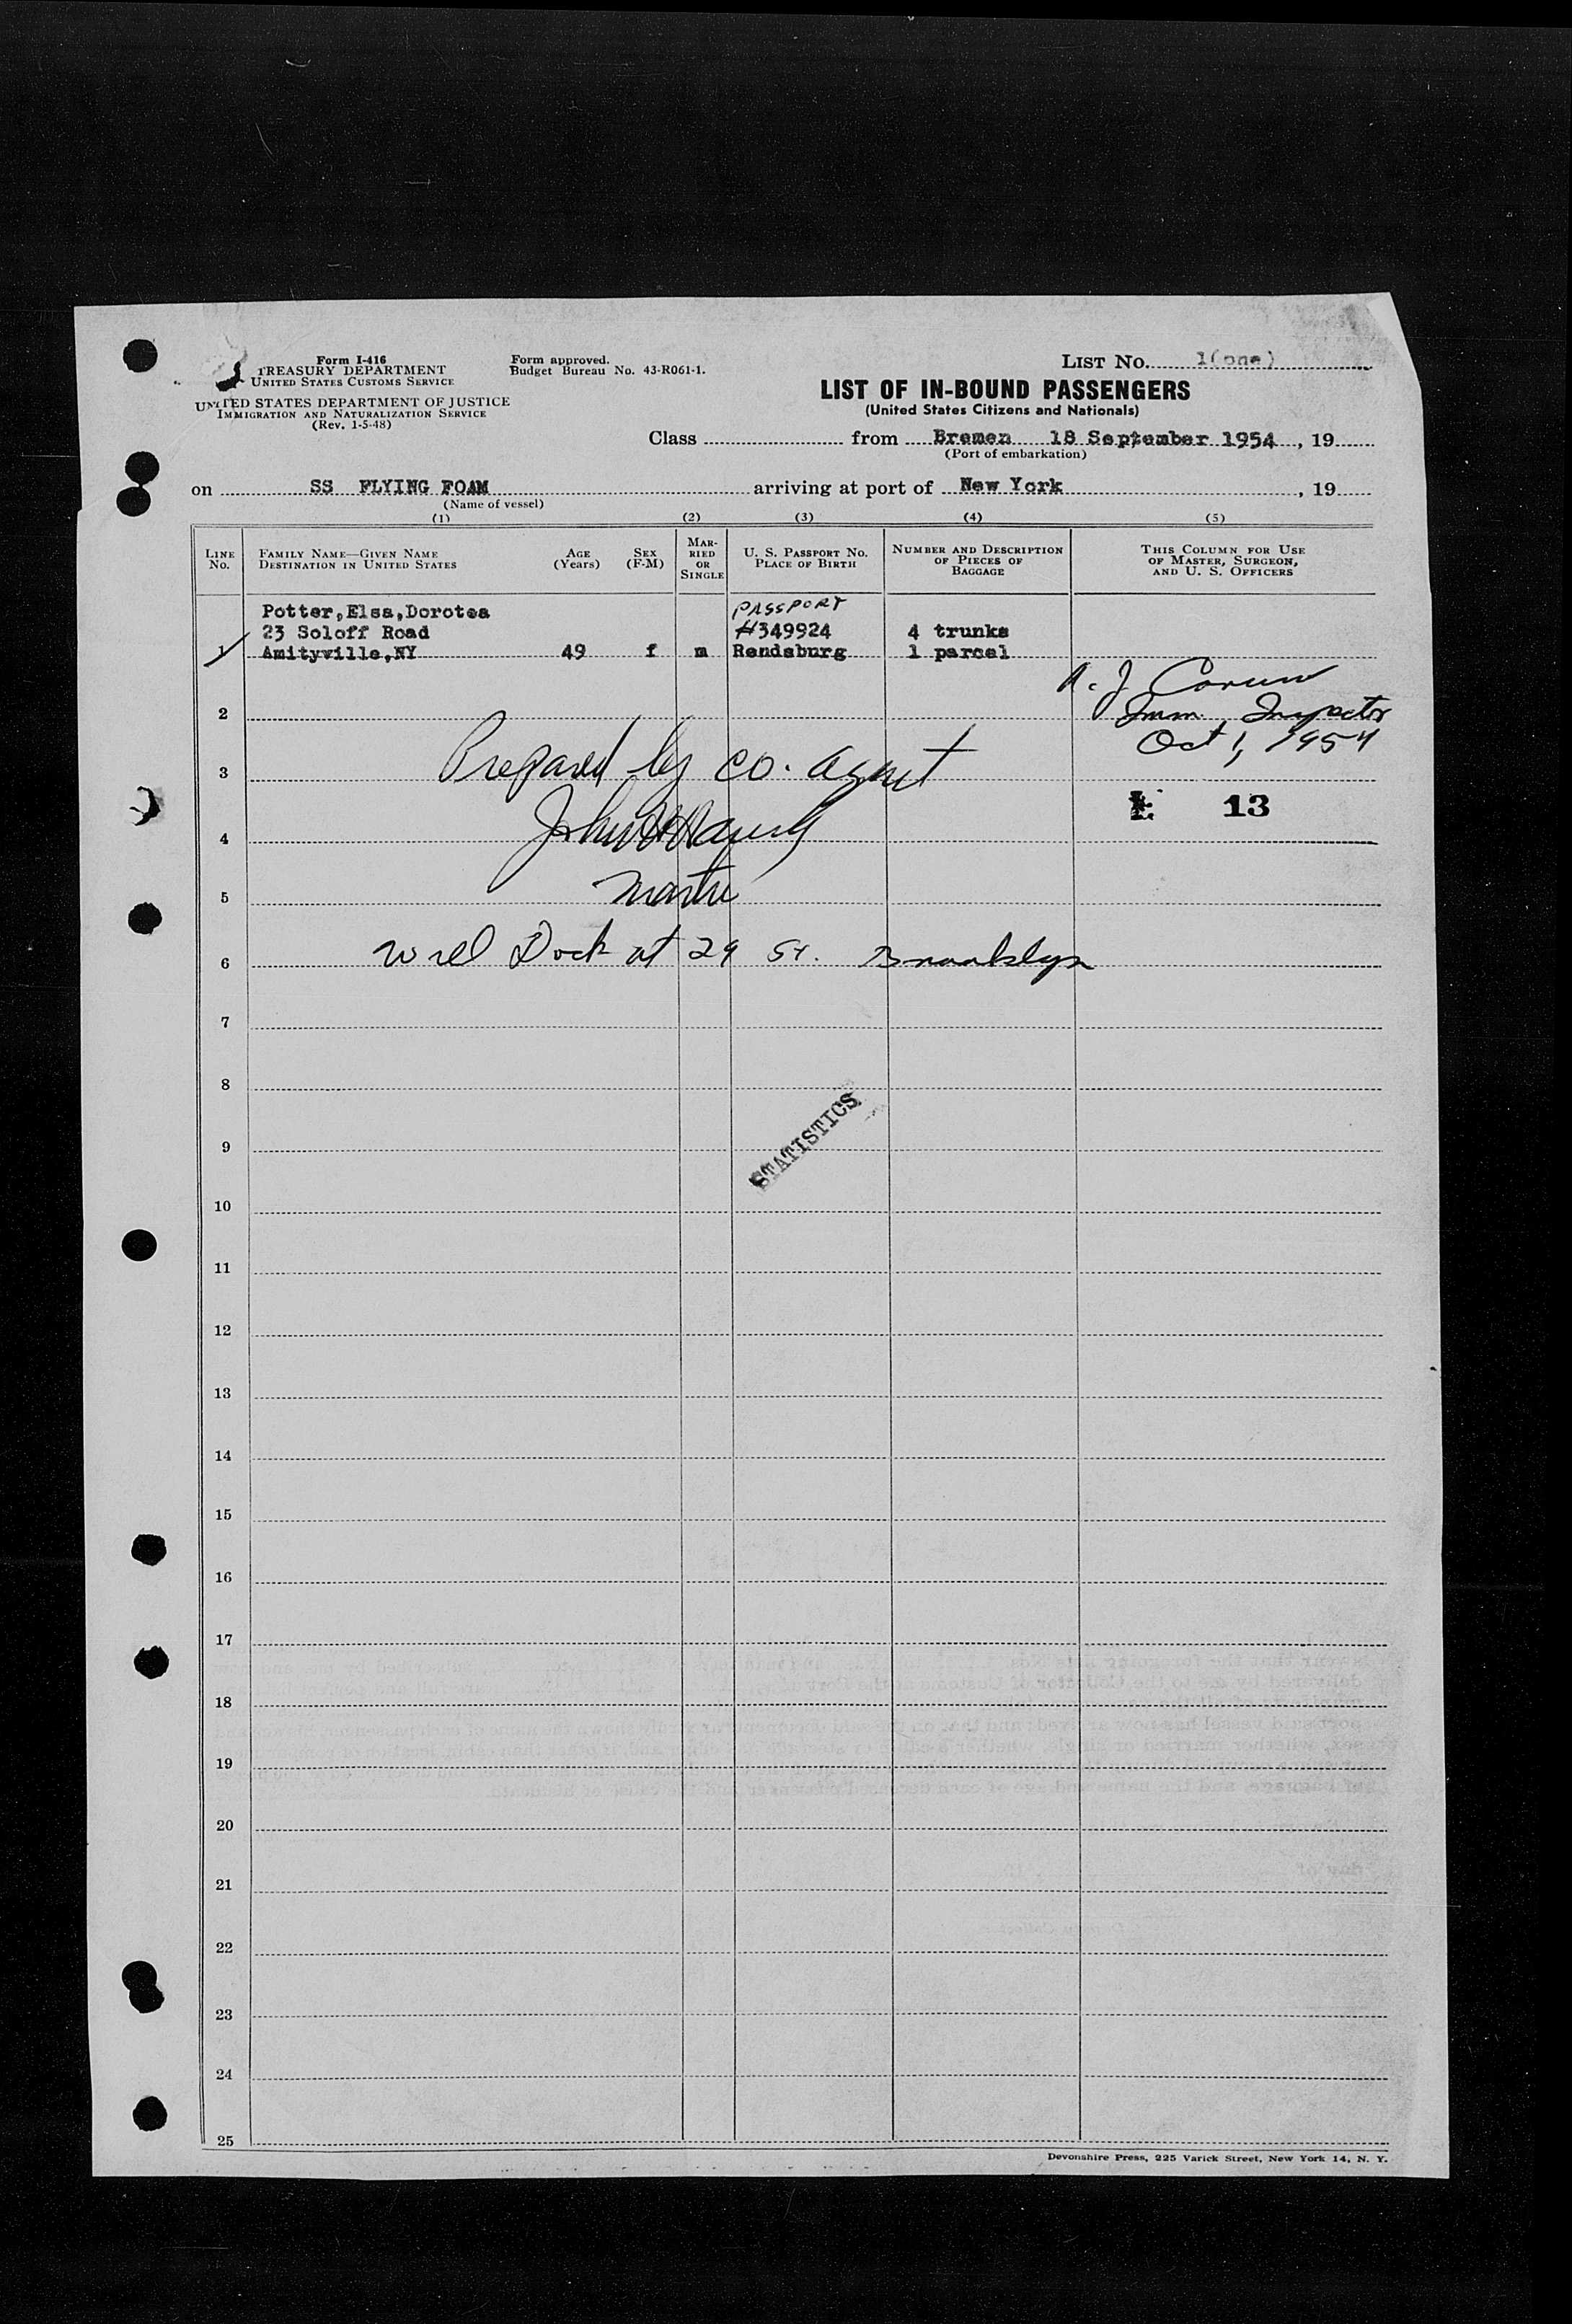 Form I-416
TREASURY DEPARTMENT
UNITED STATES CUSTOMS SERVICE
UNITED STATES DEPARTMENT OF JUSTICE
IMMIGRATION AND NATURALIZATION SERVICE
(Rev. 1-5-48)
Form approved.
Budget Bureau No. 43-R061-1.
LIST No. 1(one)
LIST OF IN-BOUND PASSENGERS
(United States Citizens and Nationals)
Class from Bremen 18 September 1954, 19
(Port of embarkation)
on SS FLYING FOAM arriving at port of New York, 19
(Name of vessel)
(1) (2) (3) (4) (5)
LINE No.
FAMILY NAME—GIVEN NAME
DESTINATION IN UNITED STATES
AGE (Years)
SEX (F-M)
MARRIED OR SINGLE
U. S. PASSPORT No.
PLACE OF BIRTH
NUMBER AND DESCRIPTION OF PIECES OF BAGGAGE
THIS COLUMN FOR USE OF MASTER, SURGEON, AND U. S. OFFICERS
Potter,Elsa,Dorotea PASSPORT
23 Soloff Road #349924 4 trunks
1 Amityville,NY 49 f m Rendsburg 1 parcel
2 Imm. Inspector
Oct 1, 1954
3 Prepared by co. agent
13
4 John
5
6 Will Dock at 29 St. Brooklyn
7
8
STATISTICS
9
10
11
12
13
14
15
16
17
18
19
20
21
22
23
24
25
Devonshire Press, 225 Varick Street, New York 14, N. Y.